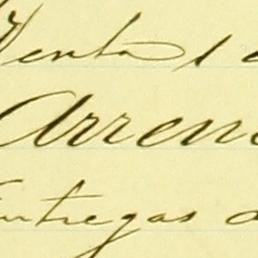 Venta
Arren
Entregas